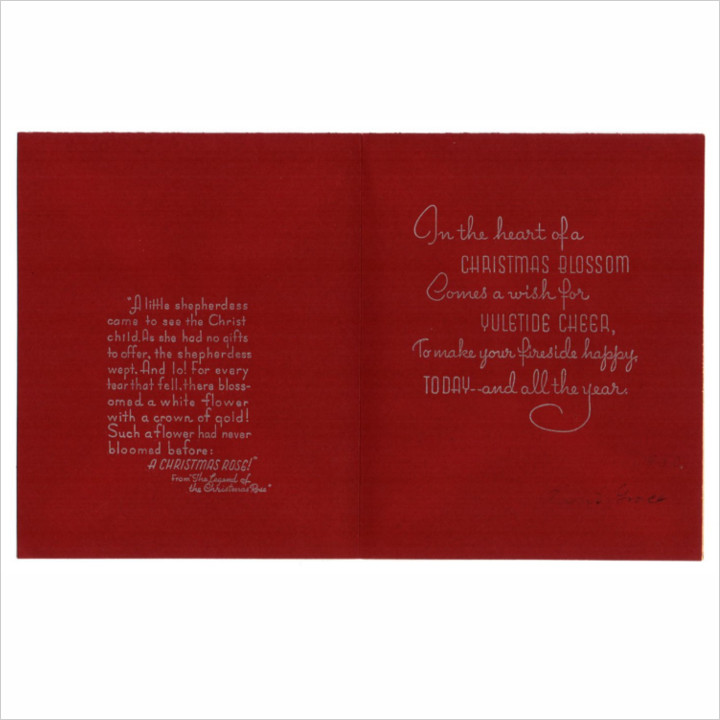 "A little shepherdess
came to see the Christ
child. As she had no gifts
to offer, the shepherdess
wept. And lo! For every
tear that fell, there bloss-
omed a white flower
with a crown of gold!
Such a flower had never
bloomed before:
A CHRISTMAS ROSE!"
From "The Legend of
the Christmas Rose"
In the heart of a
CHRISTMAS BLOSSOM
Comes a wish for
YULETIDE CHEER,
To make your fireside happy,
TODAY--and all the year.